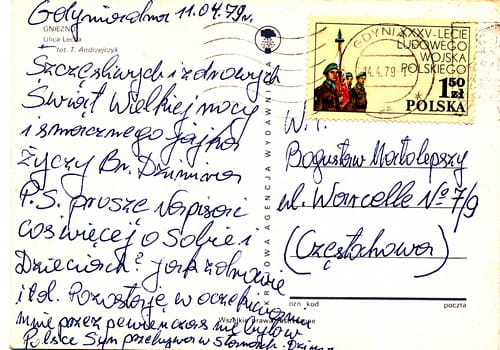 Gdynia dnia 11.04.79r.
GNIEZNO
Ulica Lecha
fot. T. Andrzejczyk
Szczęśliwych i zdrowych
Świąt Wielkiej nocy
i smacznego jajka
życzy Br.
P.S. proszę napisać
coś więcej o Sobie i
Dzieciach? jak zdrowie
itd. Pozostaję w oczekiwaniu
mnie przez pewien czas nie było w
Polsce Syn przebywa w Stanach.
KRAJOWA AGENCJA WYDAWNICZA
GDYNIA
14.4.79
XXXV-LECIE
LUDOWEGO
WOJSKA
POLSKIEGO
1 50
zł
POLSKA
W.P.
Bogusław Małolepszy
ul. Warcelle No 7/9
(Częstochowa)
kod
poczta
Wszelkie prawa